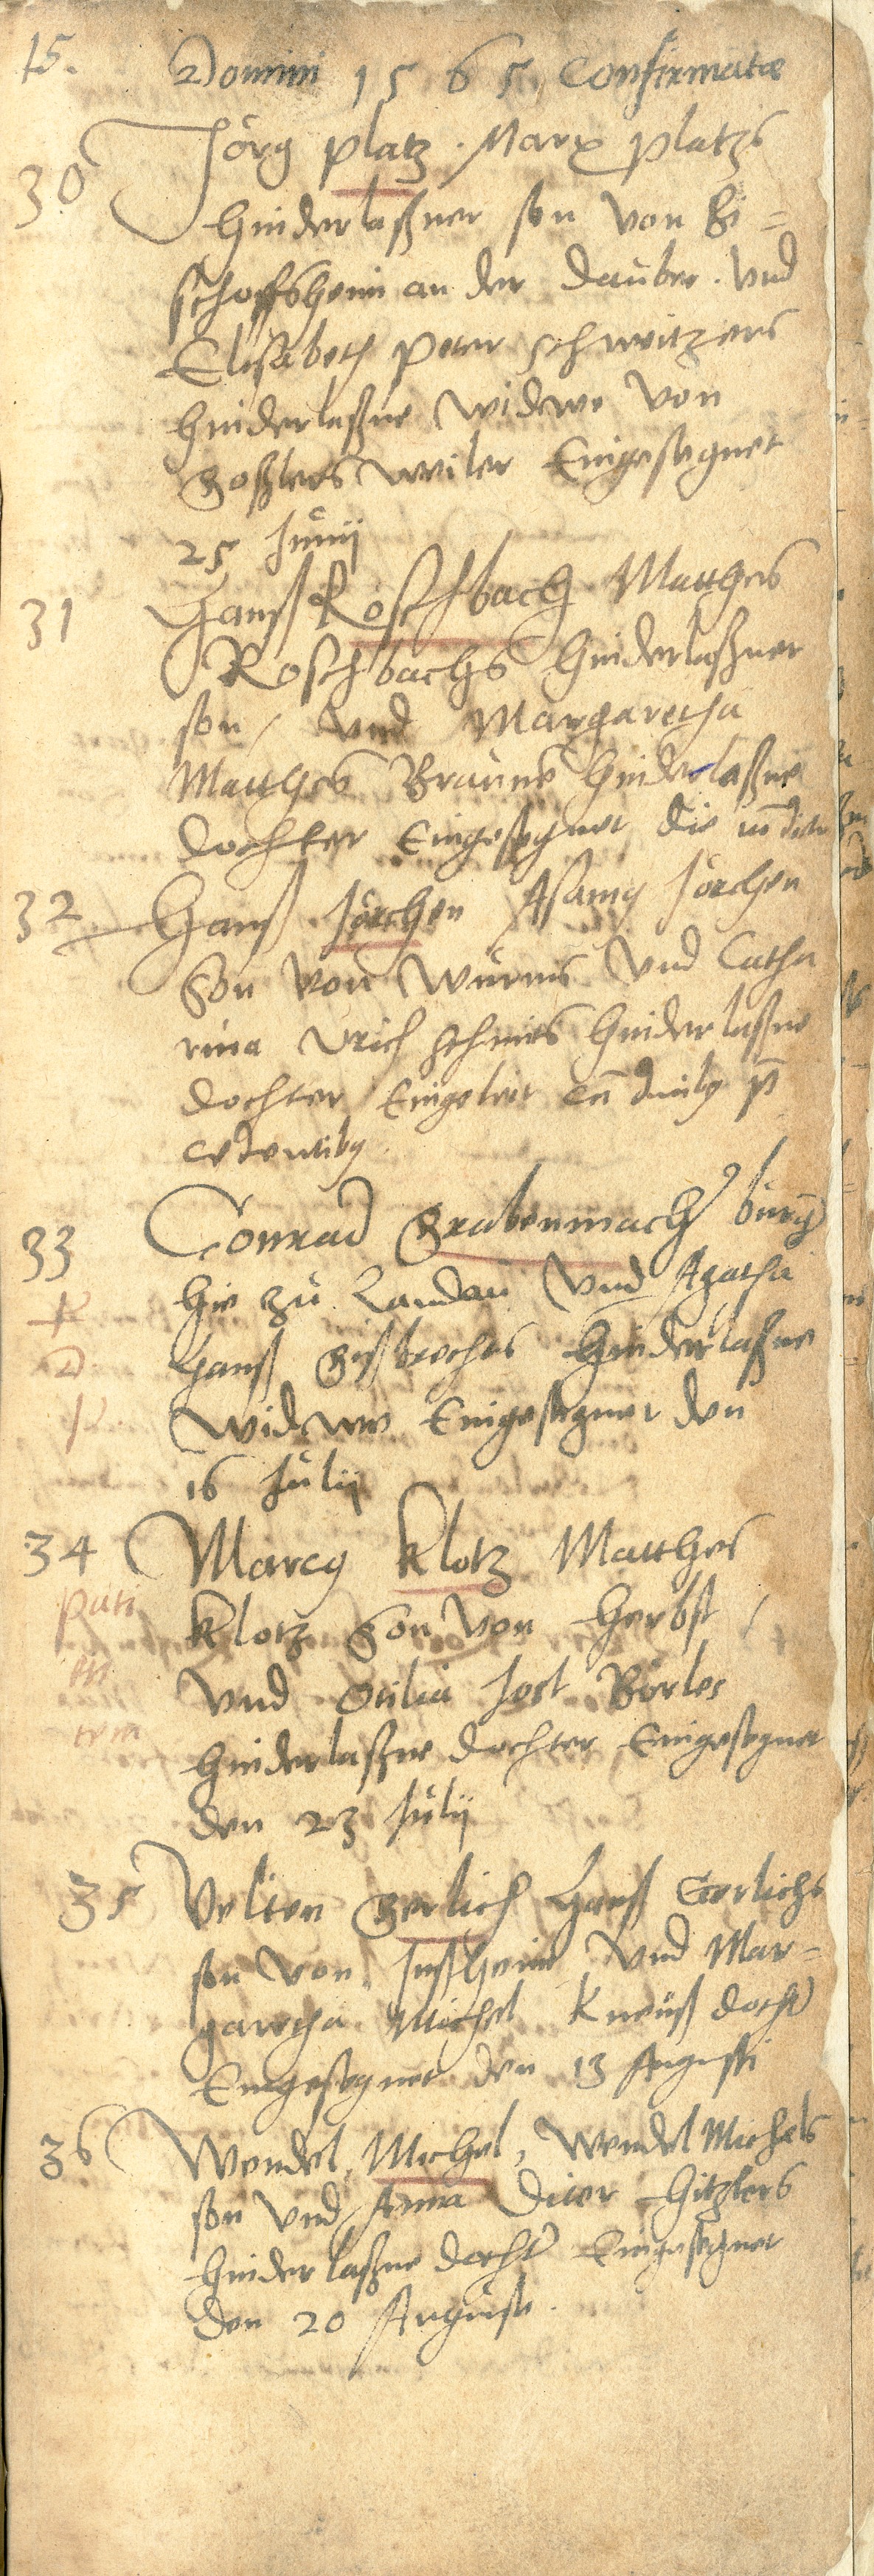 15. Domini 1565. Confirmatae
30 Jörg Platz. Marx Platzs
hinderlaßner son von Bi=
schoffsheim an der Daubre. vnd
Elisabeth Peter Schweitzers
hinderlaßne Widwe von
Goßlersweiler Eingesegnet
25 Junij
31 Hanß Roschbach Matthes
Roschbachs hinderlaßner
son / vnd Margaretha
Matthes Braune hinderlaßne
dochter Eingesegnet die
32 Hanß Jörchen Asamy Jörchen
Son von Wurms vnd Catha
rina Vrich Schmits hinderlaßne
dochter Eingeleit
cedentibg
33 Conrad Grabenmacher burg
hie zu Landau vnd Agatha
Hanß Gißbrechts hinderlaßne
Widwe Eingesegnet den
16 Julij
34 Marcy Klotz Matthes
Klotz Son von Herbst /
pati
en
tem
vnd Otilia Jost Börles
hinderlaßne dochter Eingesegnet
den 23 Julij
35 Velten Gerlich Hanß Gerlichs
son von Insheim vnd Mar=
garetha Michel Kneuß docht
Eingesegnet den 13 Augusti
36 Wendel Michel, Wendel Michels
son vnd Anna Diter Hitzlers
hinderlaßne docht Eingesegnet
den 20 Auguste.